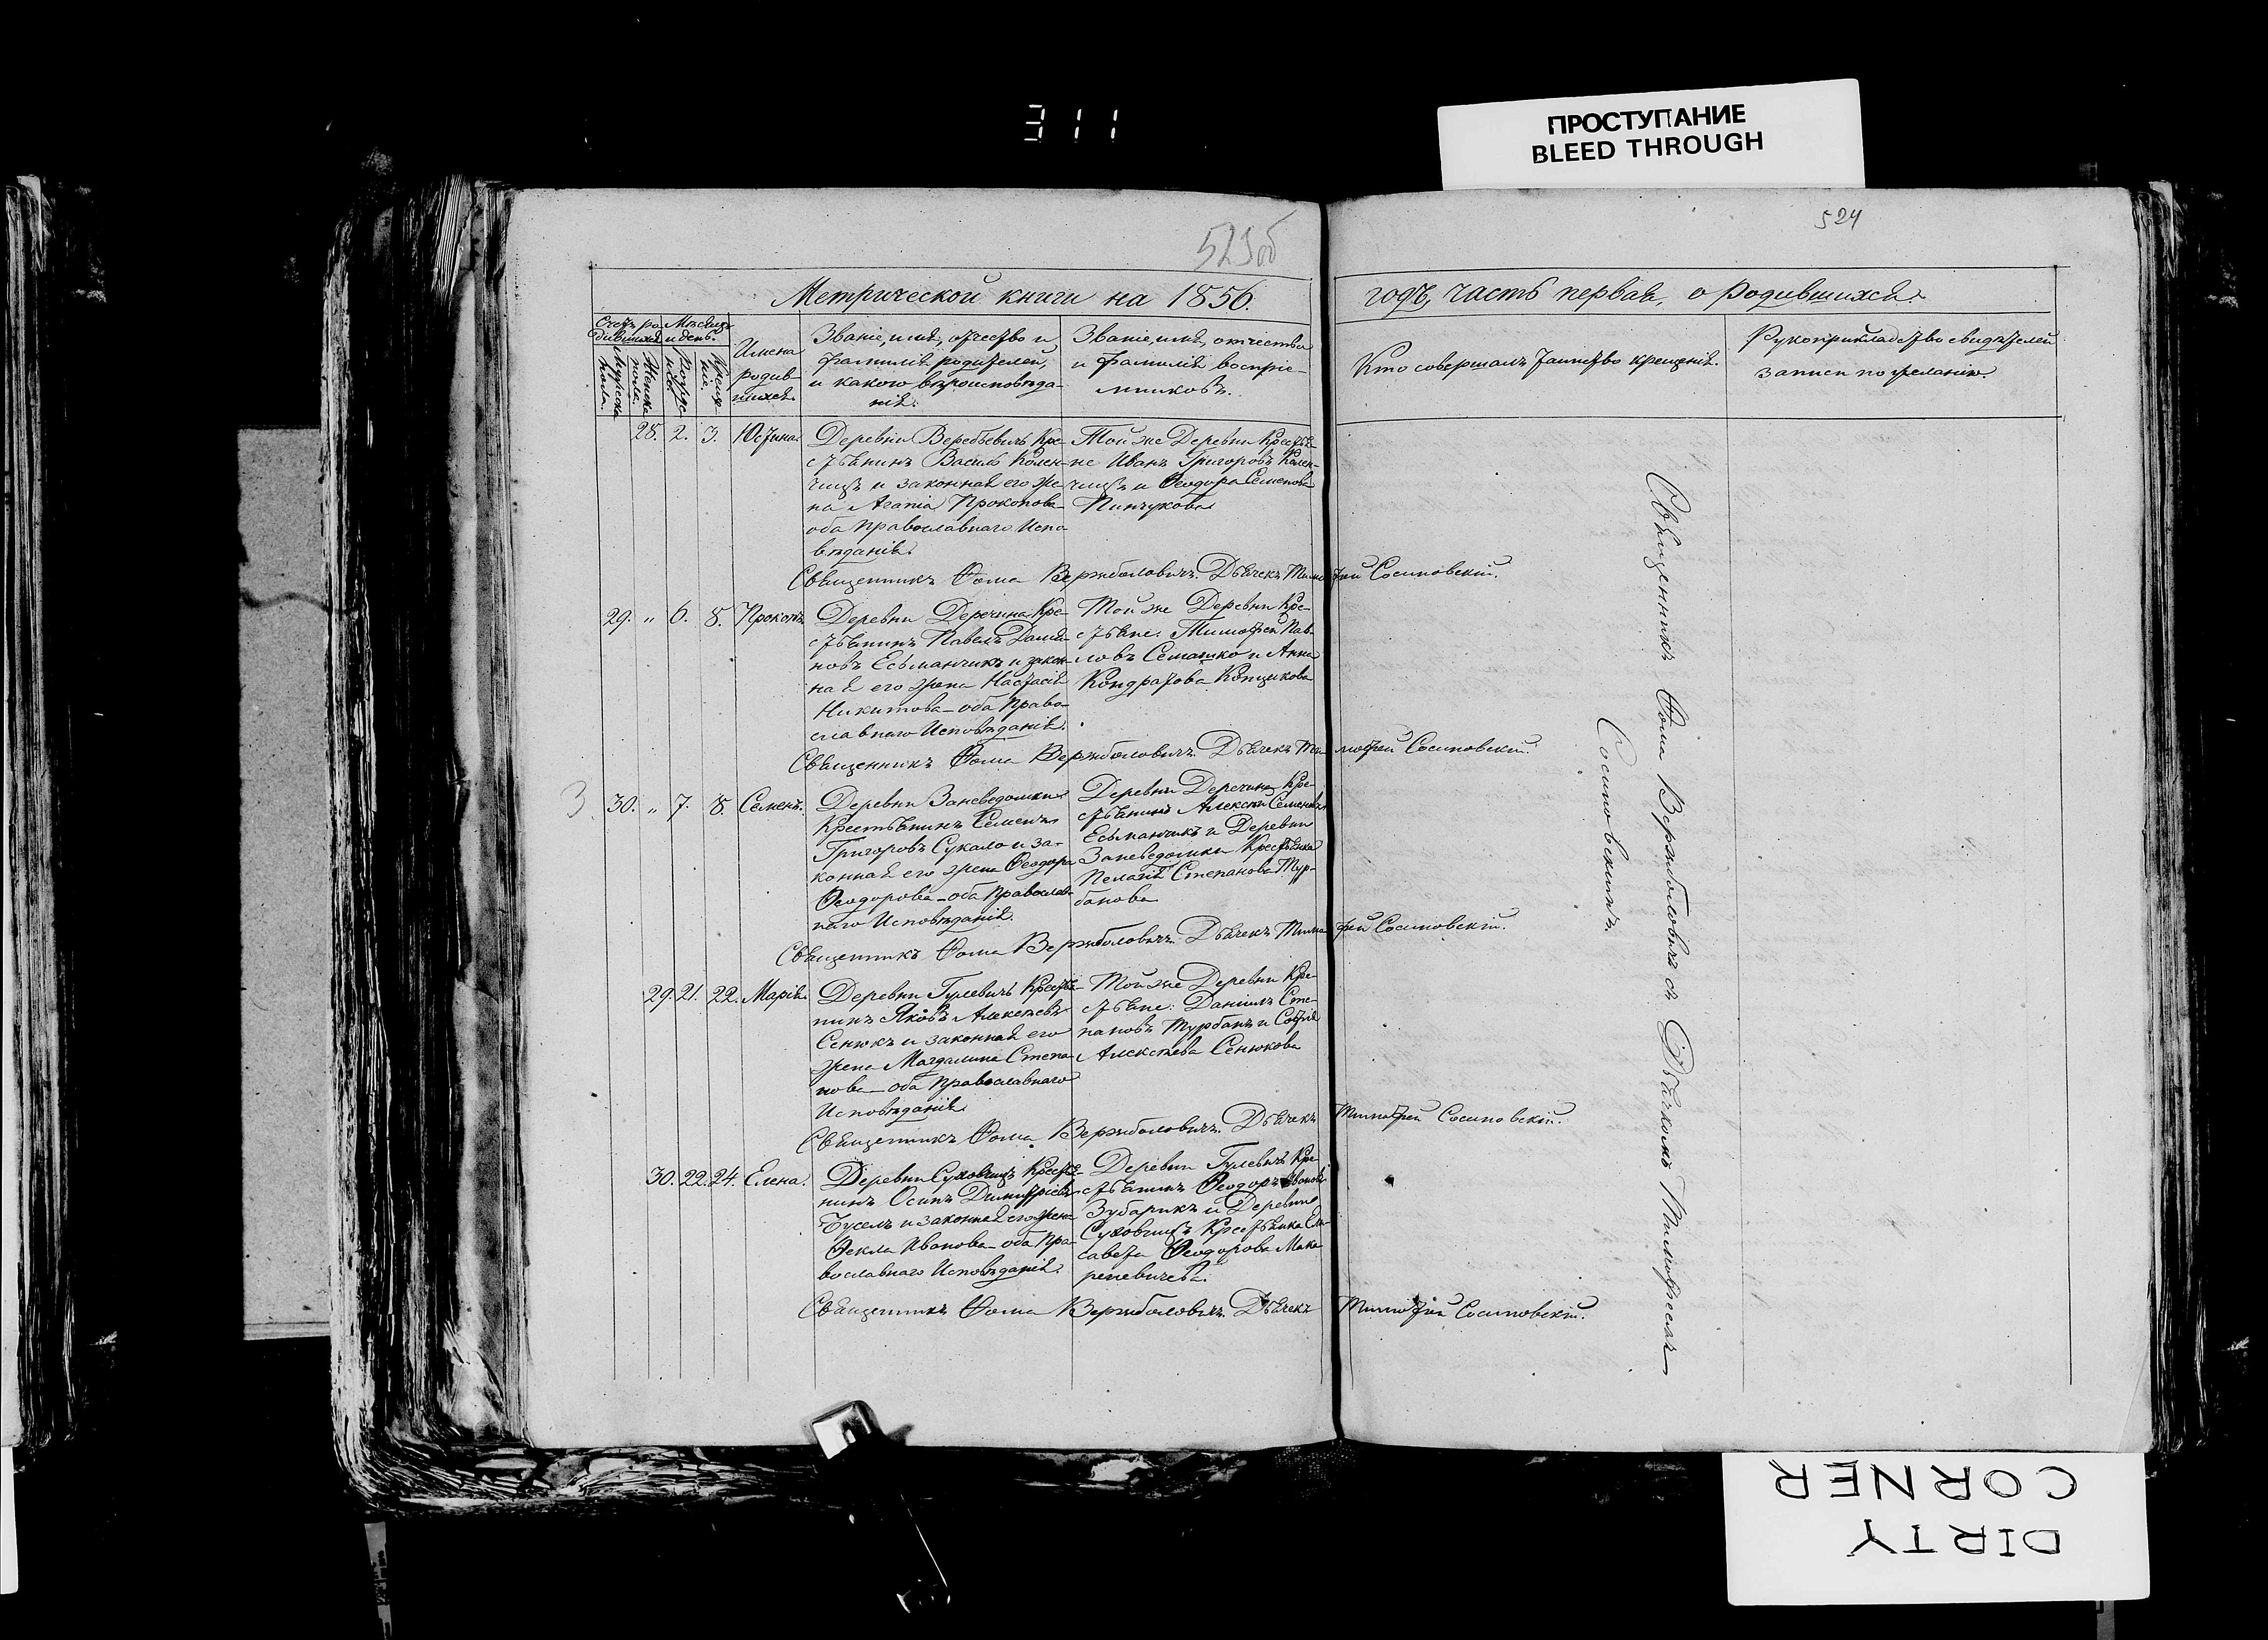 311
ПРОСТУПАНИЕ
BLEED THROUGH
523об
524
Метрической книги на 1856.
годъ, часть первая, о родившихся.
Счетъ родившихся
Мѣсяцъ и день.
Мужеска пола.
Женска пола.
Рожденія.
Крещенія.
Имена
родив-
шихся.
Званіе, имя, отчество и
фамилія родителей,
и какого вѣроисповѣда-
нія.
Званіе, имя, отчество
и фамилія воспріе-
мниковъ.
Кто совершалъ таинство крещенія.
Рукоприкладство свидѣтелей
записи по желанію.
28. 2. 3. Юстина
Деревни Веребьевичъ Кре-
стьянинъ Василь Колен-
чицъ и законная его же
на Агапія Прокопова
оба Православнаго Испо
вѣданія.
Той же Деревни Крестья-
не Иванъ Григоровъ Колен-
чицъ и Ѳеодора Семенова
Пинчукова
Священникъ Ѳома Вержболовичъ. Дьячекъ Тимофей Сосиновскій.
29. „ 6. 8. Прокопъ
Деревни Деречина Кре-
стьянинъ Павелъ Дамья-
новъ Есьманчикъ и закон-
ная его жена Настасія
Никитова – оба Право-
славнаго Исповѣданія.
Той же Деревни Кре-
стьяне: Тимофей Пав-
ловъ Семашко и Анна
Кондратова Копцикова
Священникъ Ѳома Вержболовичъ. Дьячекъ Тимофей Сосиновскій.
3
30. „ 7. 8. Семенъ.
Деревни Заневедомки
Крестьянинъ Семенъ
Григоровъ Сукало и за-
конная его жена Ѳеодора
Ѳеодорова – оба Православ-
наго Исповѣданія.
Деревни Деречина Кре-
стьянинъ Алексѣй Семеновъ
Есьманчикъ и Деревни
Заневедомки Крестьянка
Пелагія Степанова Тур-
банова
Священникъ Ѳома Вержболовичъ. Дьячекъ Тимофей Сосиновскій.
29. 21. 22. Марія.
Деревни Гулевичъ Крестья-
нинъ Яковъ Алексѣевъ
Сенюкъ и законная его
жена Магдалина Степа-
нова – оба Православнаго
Исповѣданія.
Той же Деревни Кре-
стьяне: Даніилъ Сте-
пановъ Турбанъ и Софія
Алексѣева Сенюкова
Священникъ Ѳома Вержболовичъ. Дьячекъ Тимофей Сосиновскій.
30. 22. 24. Елена.
Деревни Суховщицъ Крестья-
нинъ Осипъ Димитріевъ
Буселъ и законная его жена
Ѳекла Иванова – оба Пра-
вославнаго Исповѣданія.
Деревни Гулевичъ Кре-
стьянинъ Ѳеодоръ Ивановъ
Зубарикъ и Деревни
Суховщицъ Крестьянка Ели-
савета Ѳеодорова Мака-
реневичева.
Священникъ Ѳома Вержболовичъ. Дьячекъ Тимофей Сосиновскій.
Священникъ Ѳома Вержболовичъ съ Дьячкомъ Тимофеемъ
Сосиновскимъ.
DIRTY
CORNER